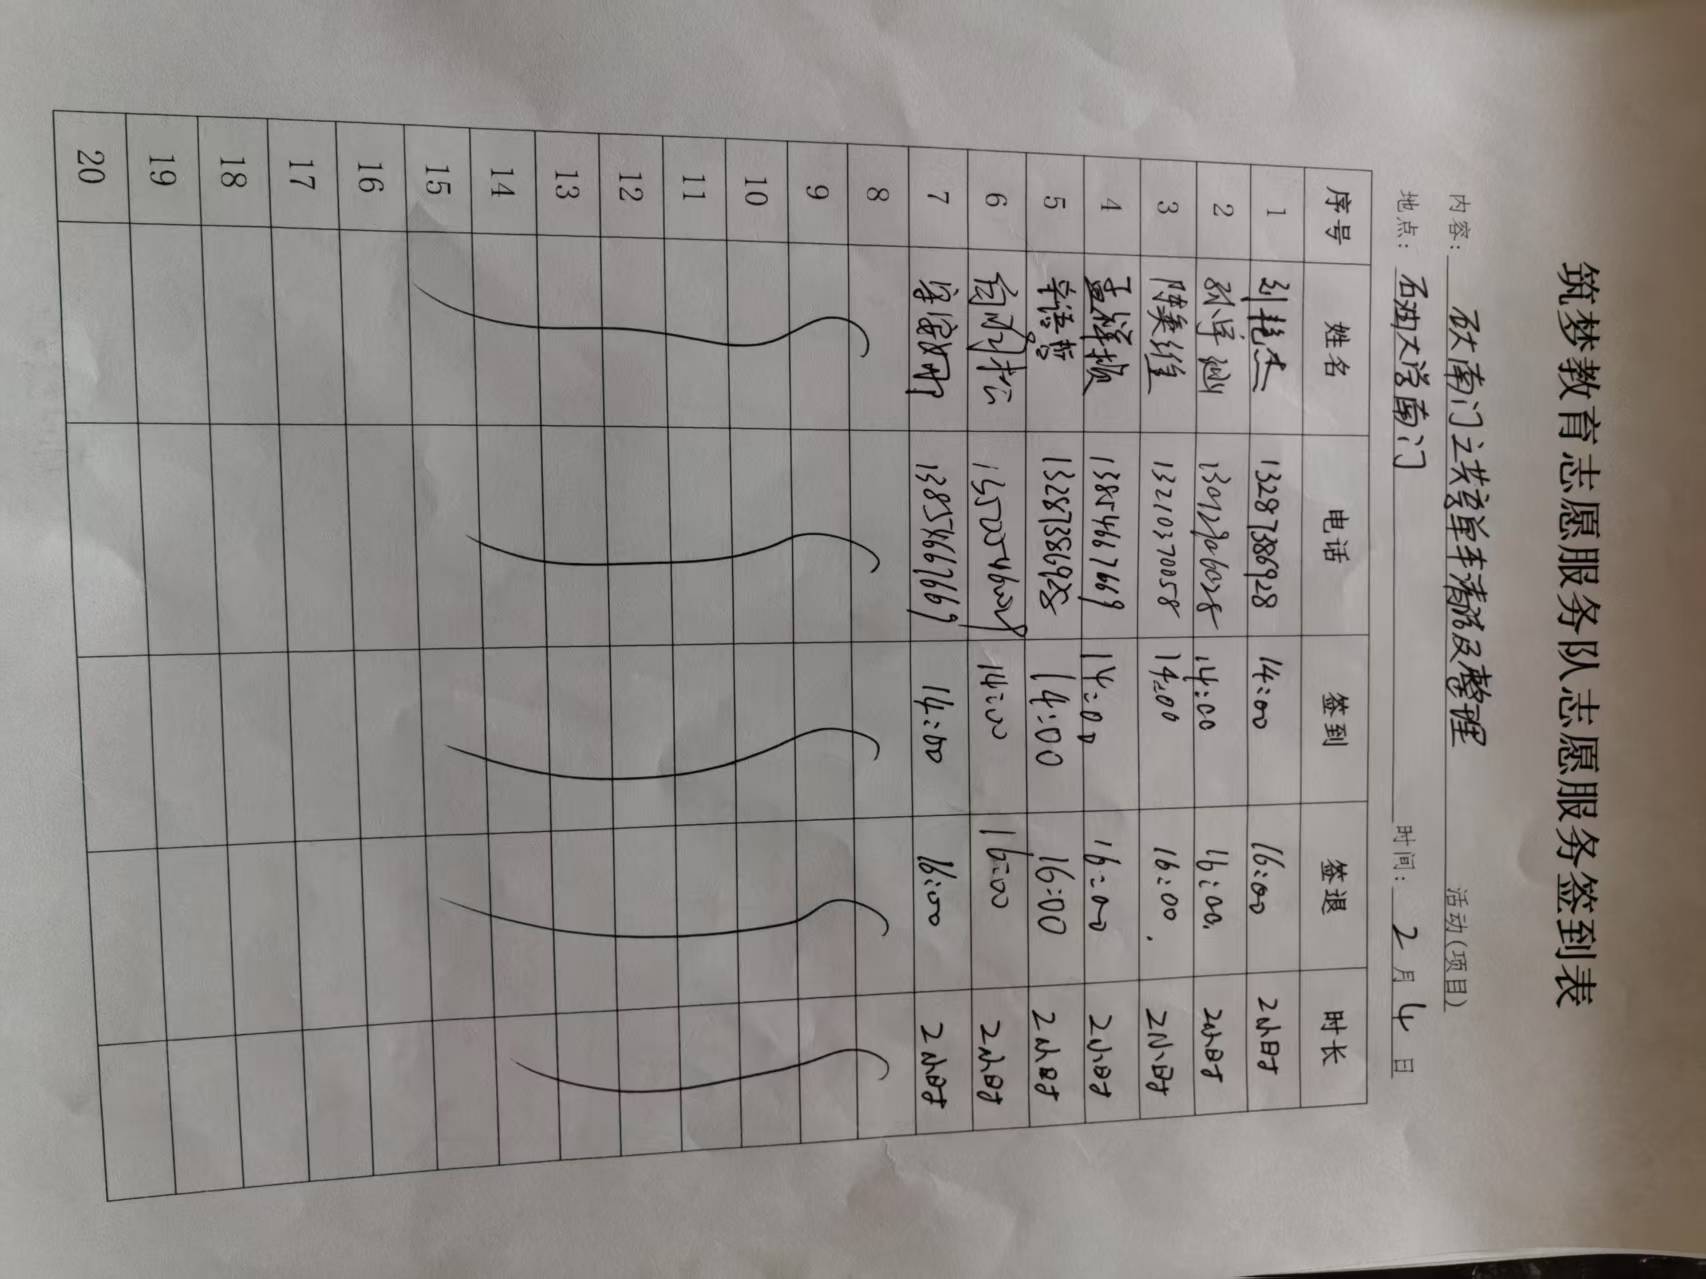 筑梦教育志愿服务队志愿服务签到表
内容: 南门共享单车清洗及整理 活动(项目)
地点: 石油大学南门 时间: 2 月 4 日
序号 姓名 电话 签到 签退 时长
1 刘艳杰 13287386928 14:00 16:00 2小时
2 14:00 16:00 2小时
3 陈美维 13210370058 14:00 16:00 2小时
4 孟祥振 13854667669 14:00 16:00 2小时
5 13287386928 14:00 16:00 2小时
6 14:00 16:00 2小时
7 13854667669 14:00 16:00 2小时
8
9
10
11
12
13
14
15
16
17
18
19
20